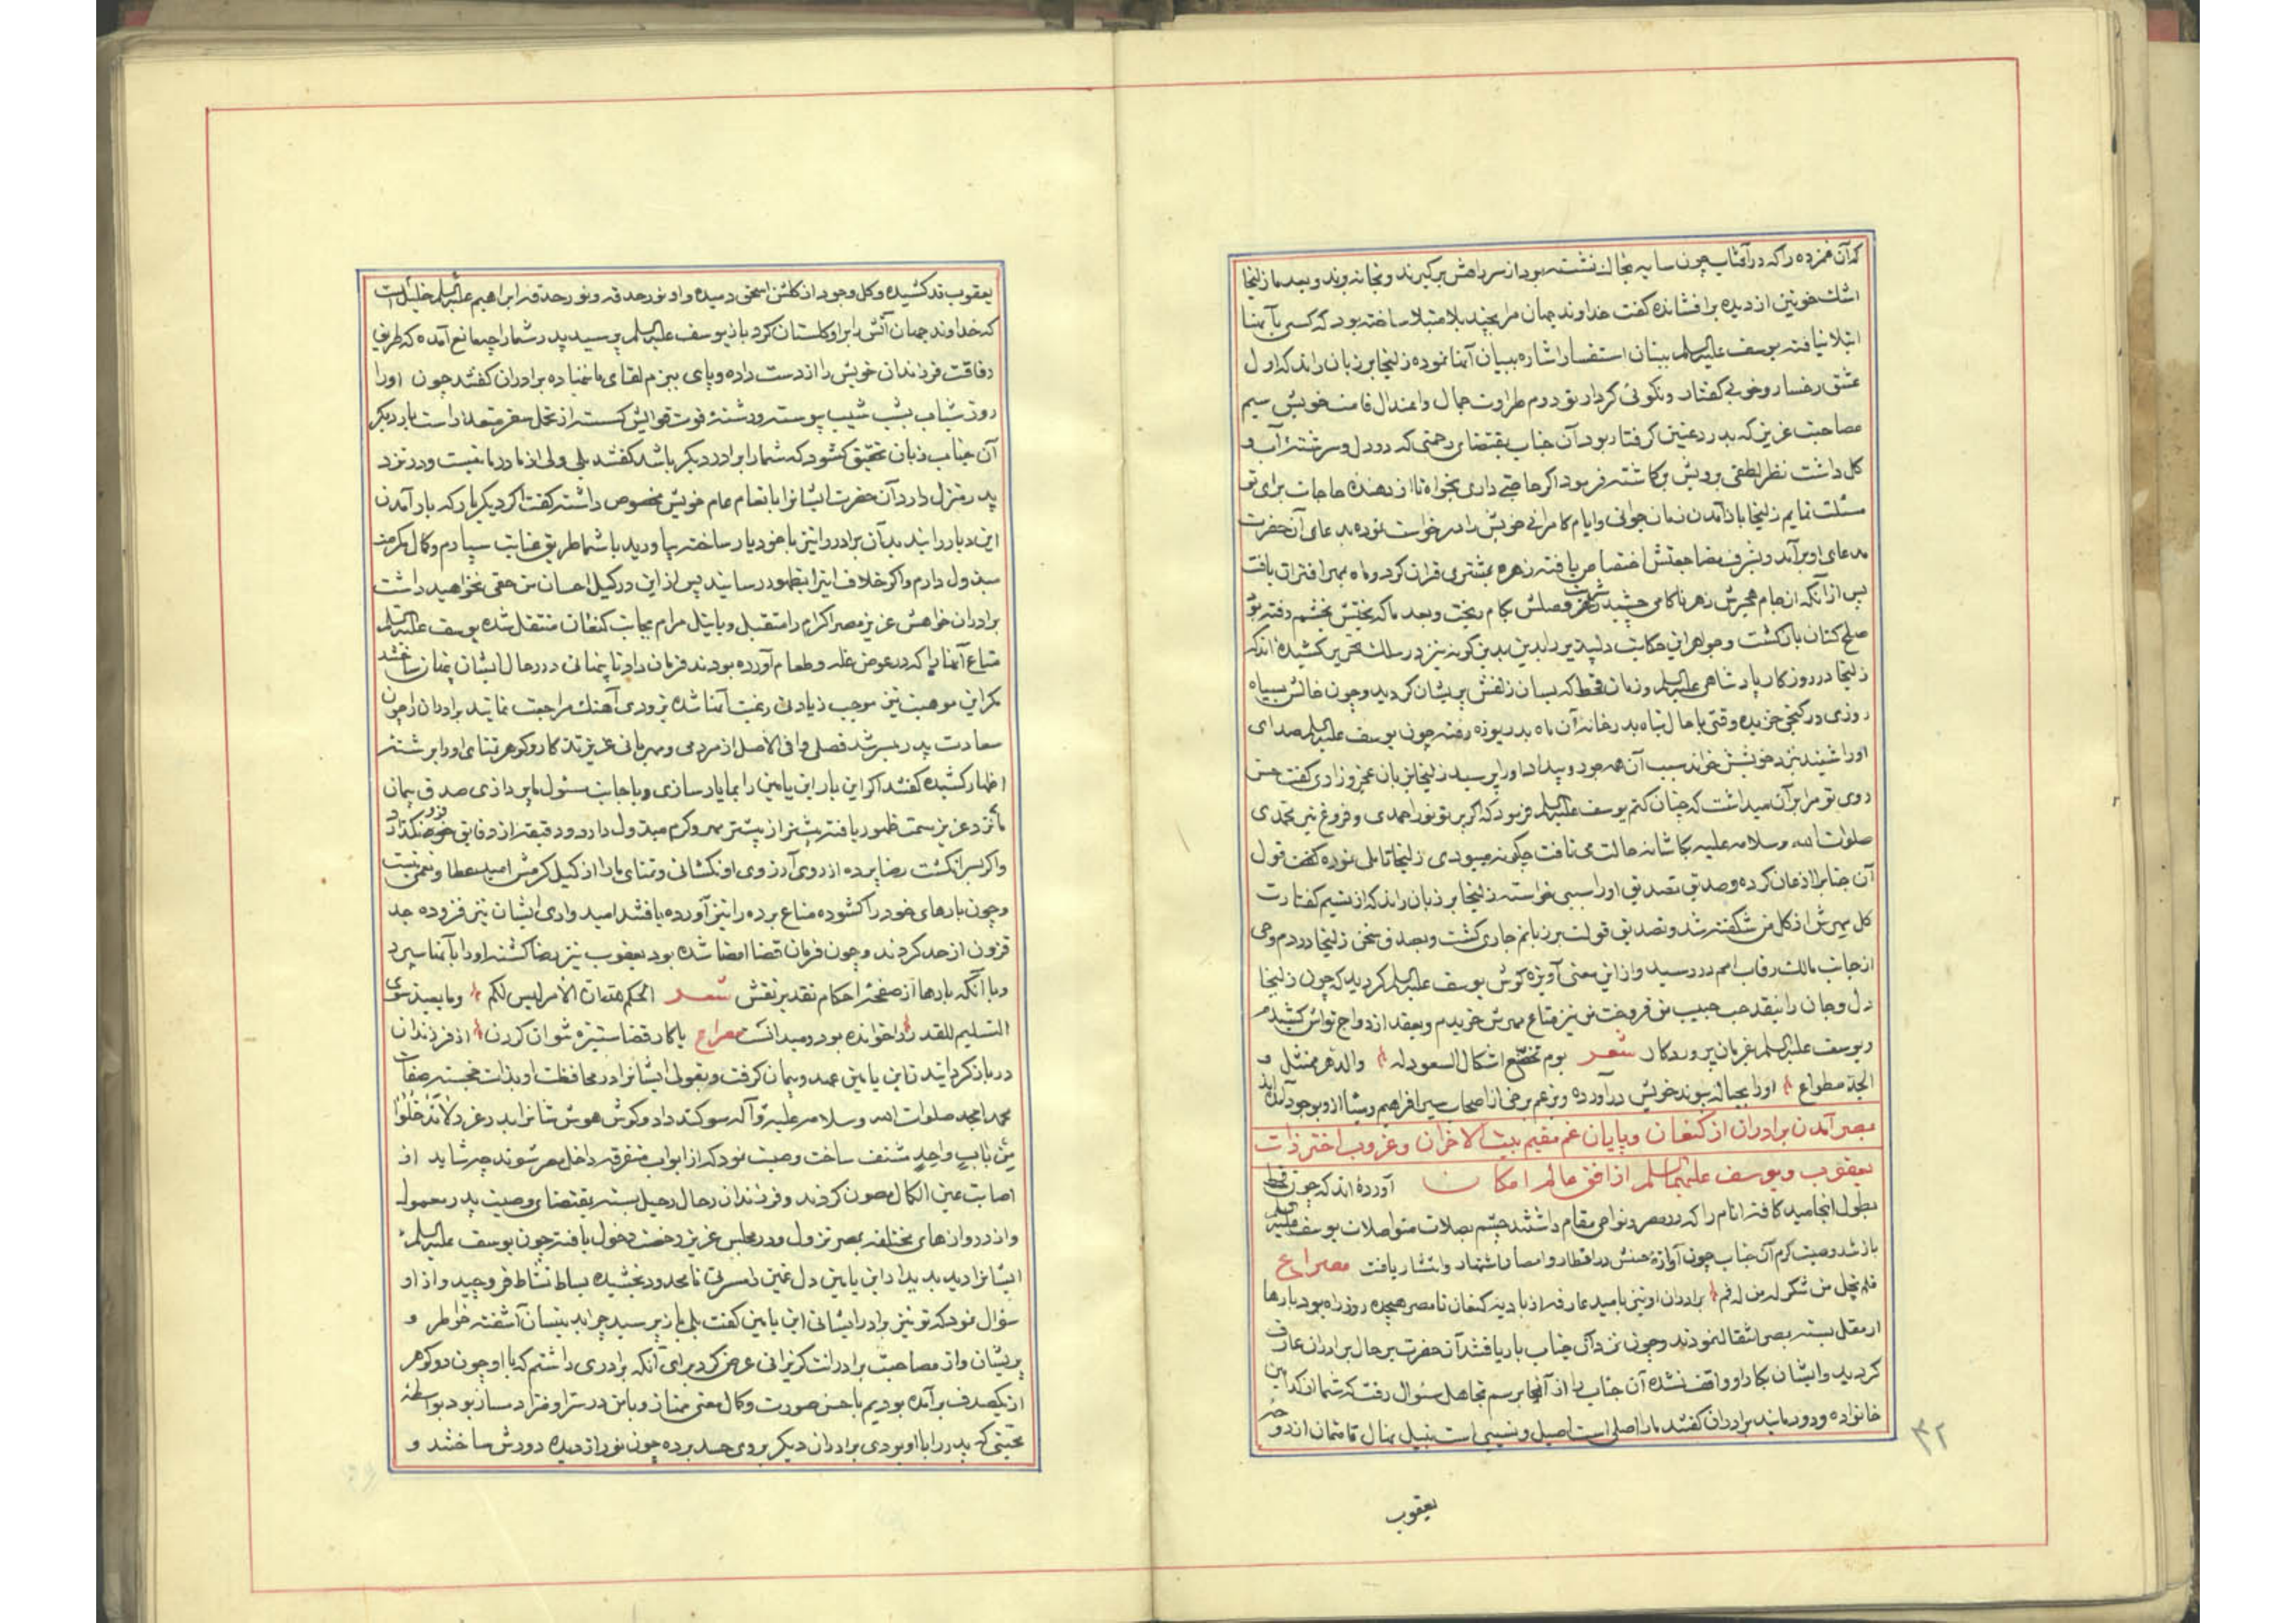 که آن غمزده را که در آفتاب چون سایه بخاک نشسته بود از سر راهش برگیرند و بخانه برند و بعد ما زلیخا
اشک خونین از دیده برافشانده گفت خداوند جهان مرا بچند بلا مبتلا ساخته بود که کسی بآنها
ابتلا نیافته یوسف علیه السلم ببنان استفسار اشاره ببیان آنها نموده زلیخا بر زبان راند که اول
عشق رخسار و خوبی گفتار و نکوئی کردار تو دوم طراوت جمال و اعتدال قامت خویش سیم
مصاحبت عزیزی که بدرد عنین گرفتار بود آن جناب بمقتضای رحمتی که در دل و سرشته آب و
گل داشت نظر لطفی برویش برگماشته فرمود اگر حاجتی داری بخواه تا از دهنده حاجات برای تو
مسئلت نمایم زلیخا باز آمدن زمان جوانی و ایام کامرانی خویش را درخواست نموده بدعای آن حضرت
مدعای او برآمد و بشرف مضاجعتش اختصاص یافته زهره بمشتری قران کرد و ماه بمهر اقتران یافت
پس از آنکه از جام هجرش زهر ناکامی چشید شربت وصلش بکام ریخت و بعد ما که بختش بخشم رفته بود
صلح کنان بازگشت و جواهر این حکایت دلپذیر را بدین گونه نیز در سلک تحریر کشیده اند که
زلیخا در روزگار پادشاهی علیه السلم و زمان قحط که بسان زلفش پریشان گردید و چون خالش بسیاه
روزی در کنجی خزیده وقتی با حال تباه بدر خانه آن ماه بدریوزه رفته چون یوسف علیه السلم صدای
او را شنید نزد خویشش خواند سبب آن همه جود و بیداد او را پرسید زلیخا بزبان عجز و زاری گفت حسن
روی تو مرا بر آن میداشت که چنان کنم یوسف علیه السلم فرمود که اگر پرتو نور احمدی و فروغ نیر محمدی
صلوات الله و سلامه علیه بکاشانه حالت می تافت چگونه میبودی زلیخا تاملی نموده گفت قول
آن جناب را اذعان کرده و صدیق تصدیق او را سببی خواسته زلیخا بر زبان راند که از نسیم گفتارت
گل مهرش از گل من شکفته شد و تصدیق قولت بر زبانم جاری گشت و بصدق سخن زلیخا در دم وحی
از جانب مالک رقاب امم در رسید و از این معنی آویزه گوش یوسف علیه السلم گردید که چون زلیخا
دل و جان را بنقد حب حبیب من فروخت من نیز متاع مهرش خریدم و بعقد ازدواج تواش کشیدم
و یوسف علیه السلم بفرمان پروردگار شعر یوم تخضع اشکال السعود له والدهر ممتثل و
الجد مطواع او را بحباله پیوند خویش درآورده و بزعم برخی از اصحاب سیر افرایم و میشا از او بوجود آمده اند
بمصر آمدن برادران از کنعان و پایان غم مقیم بیت الاحزان و غروب اختر ذات
یعقوب و یوسف علیهما السلم از افق عالم امکان آورده اند که چون قحط
بطول انجامید کافه انام را که در مصر و نواحی مقام داشتند چشم بصلات متواصلات یوسف علیه السلم
باز شد و صیت کرم آن جناب چون آوازه حسنش در اقطار و امصار اشتهار و انتشار یافت مصراع
فلم یخل من شکر له من له فم برادران او نیز بامید عارفه از بادیه کنعان تا مصر هیجده روز راه بود بارها
از مقل بسته بمصر انتقال نمودند و چون نزد آن جناب بار یافتند آن حضرت بر حال برادران عارف
گردید و ایشان بکار او واقف نشده آن جناب را از آنجا برسم تجاهل سئوال رفت که شما از کدامین
خانواده و دودمانید برادران گفتند ما را اصلی است اصیل و نسبی است نبیل نهال قامتمان از دو
۳۲
یعقوب
یعقوب قد کشیده و گل وجود از گلشن اسحق دمیده و او نور حدقه و نور حدیقه ابراهیم علیه السلم خلیل است
که خداوند جهان آتش را بر او گلستان کرد باز یوسف علیه السلم پرسید پدر شما را چه مانع آمده که طریق
رفاقت فرزندان خویش را از دست داده و پای ببزم لقای ما ننهاده برادران گفتند چون او را
روز شباب بشب شیب پیوسته و رشته قوت قوایش گسسته از تحمل سفر متعذر است بار دیگر
آن جناب زبان تحقیق گشود که شما را برادر دیگر باشد گفتند بلی ولی از مادر ما نیست و در نزد
پدر منزل دارد آن حضرت ایشانرا بانعام عام خویش مخصوص داشته گفت اگر دیگر بار که بار آمدن
این دیار را بندید آن برادر را نیز با خود یار ساخته بیاورید با شما طریق عنایت سپارم و کمال مکرمت
مبذول دارم و اگر خلاف اینرا بظهور رسانید پس از این در کیل احسان من حقی نخواهید داشت
برادران خواهش عزیز مصر اکرام را متقبل و با نیل مرام بجانب کنعان منتقل شده یوسف علیه السلم
متاع آنها را که در عوض غله و طعام آورده بودند فرمان داد تا پنهانی در رحال ایشان پنهان ساختند
مگر این موهبت نیز موجب زیادتی رغبت آنها شده بزودی آهنگ مراجعت نمایند برادران را چون
سعادت پدر میسر شد فصلی وافی الاصل از مردمی و مهربانی عزیز تذکار و گوهر ثنای او را برشته
اظهار کشیده گفتند اگر این بار ابن یامین را بما یار سازی و باجابت مسئول ما پردازی صدق پیمان
ما نزد عزیز سمت ظهور یافته بیشتر از پیشتر مهر و کرم مبذول دارد و دقیقه از دقایق فرو نگذارد
و اگر بسرانگشت رضا پرده از روی آرزوی او نگشائی و تمنای ما را از کیل کرمش امید عطا و نعمتی نیست
و چون بارهای خود را گشوده متاع برده را نیز آورده یافتند امیدواری ایشان نیز فزوده جد
فزون از حد کردند و چون فرمان قضا امضا شده بود یعقوب نیز رضا گشته او را بآنها سپرد
و با آنکه بارها از صفحه احکام تقدیر نقش شعر الحکم لله ان الامر لیس لکم و ما بعید سوی
التسلیم للقدر را خوانده بود و میدانست مصراع با کار قضا ستیزه نتوان کردن از فرزندان
در باز گردانیدن ابن یامین عهد و پیمان گرفت و بقولی ایشانرا در محافظت او بذات خجسته صفات
محمد امجد صلوات الله و سلامه علیه و آله سوگند داد و گوش هوش شانرا بدر غرر لا تدخلوا
من باب واحد مشنف ساخت وصیت نمود که از ابواب متفرقه داخل مصر شوند چه شاید از
اصابت عین الکمال مصون گردند و فرزندان رحال رحیل بسته بمقتضای وصیت پدر معمول
و از دروازهای مختلفه بمصر نزول و در مجلس عزیز رخصت دخول یافته چون یوسف علیه السلم
ایشانرا دید بدیدار ابن یامین دل غمین را مسرتی نامحدود بخشیده بساط نشاط فروچید و از او
سؤال نمود که تو نیز برادر ایشانی ابن یامین گفت بلی باز پرسید چرا بدینسان آشفته خواطر و
پریشان و از مصاحبت برادرانت گریزانی عرض کرد برای آنکه برادری داشتم که با او چون دو گوهر
از یکصدف برآمده بودیم با حسن صورت و کمال معنی ممتاز و با من در سرا و ضرا دمساز بود بواسطه
محبتی که پدر را با او بودی برادران دیگر بروی حسد برده چون نور از دیده دورش ساختند و